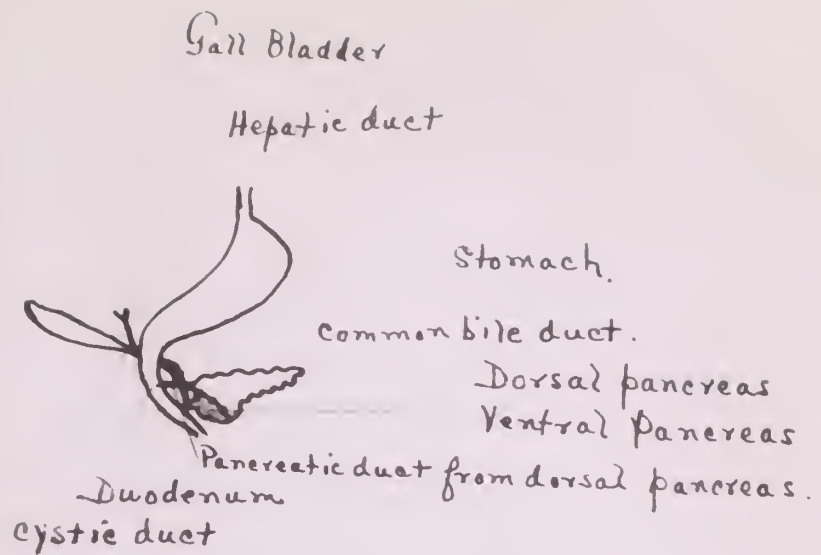 Gall Bladder
Hepatic duct
Stomach.
Common bile duct.
Dorsal pancreas
Ventral Pancreas
Pancreatic duct from dorsal pancreas.
Duodenum
Cystic duct